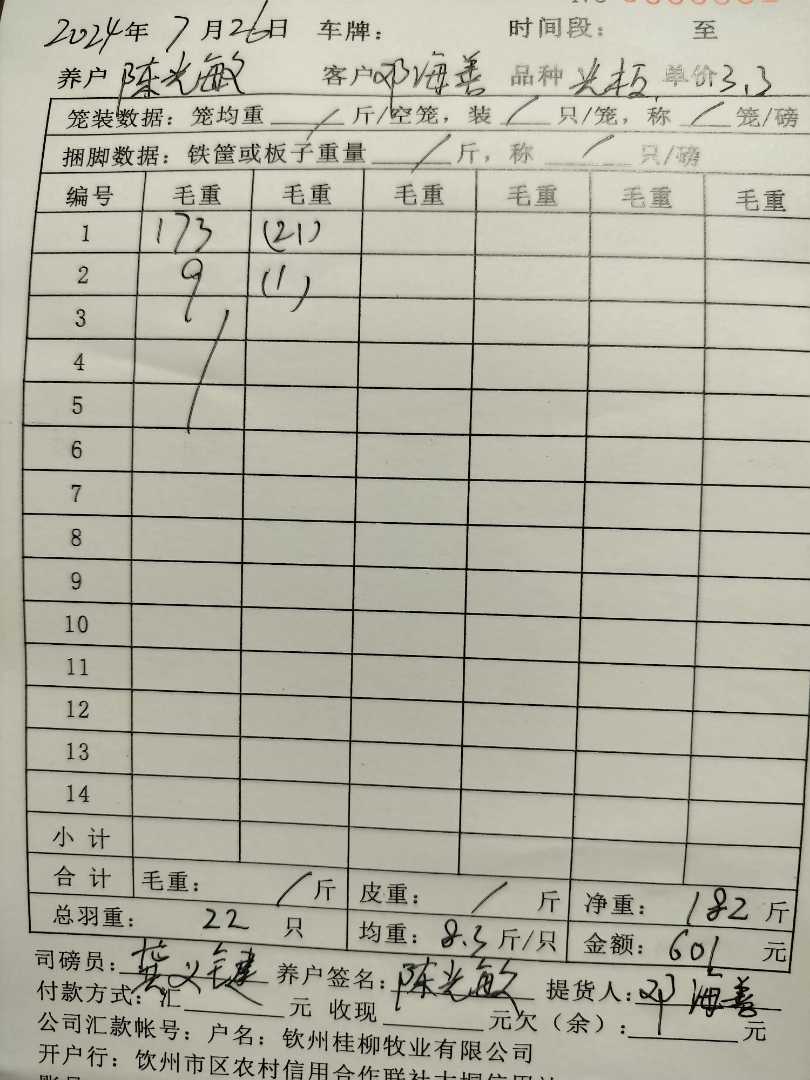 2024年 7月26日 车牌： 时间段： 至
养户 陈光敏 客户 邓海善 品种 光板 单价3.3
笼装数据：笼均重 / 斤/空笼，装 / 只/笼，称 / 笼/磅
捆脚数据：铁筐或板子重量 / 斤，称 / 只/磅
编号 毛重 毛重 毛重 毛重 毛重 毛重
1 173 (21)
2 9 (1)
3
4
5
6
7
8
9
10
11
12
13
14
小计
合计 毛重： / 斤 皮重： / 斤 净重： 182 斤
总羽重： 22 只 均重： 8.3 斤/只 金额： 601 元
司磅员： 龚义键 养户签名： 陈光敏 提货人： 邓海善
付款方式：汇 元 收现 元欠（余）： 元
公司汇款帐号：户名：钦州桂柳牧业有限公司
开户行：钦州市区农村信用合作联社大垌信用社